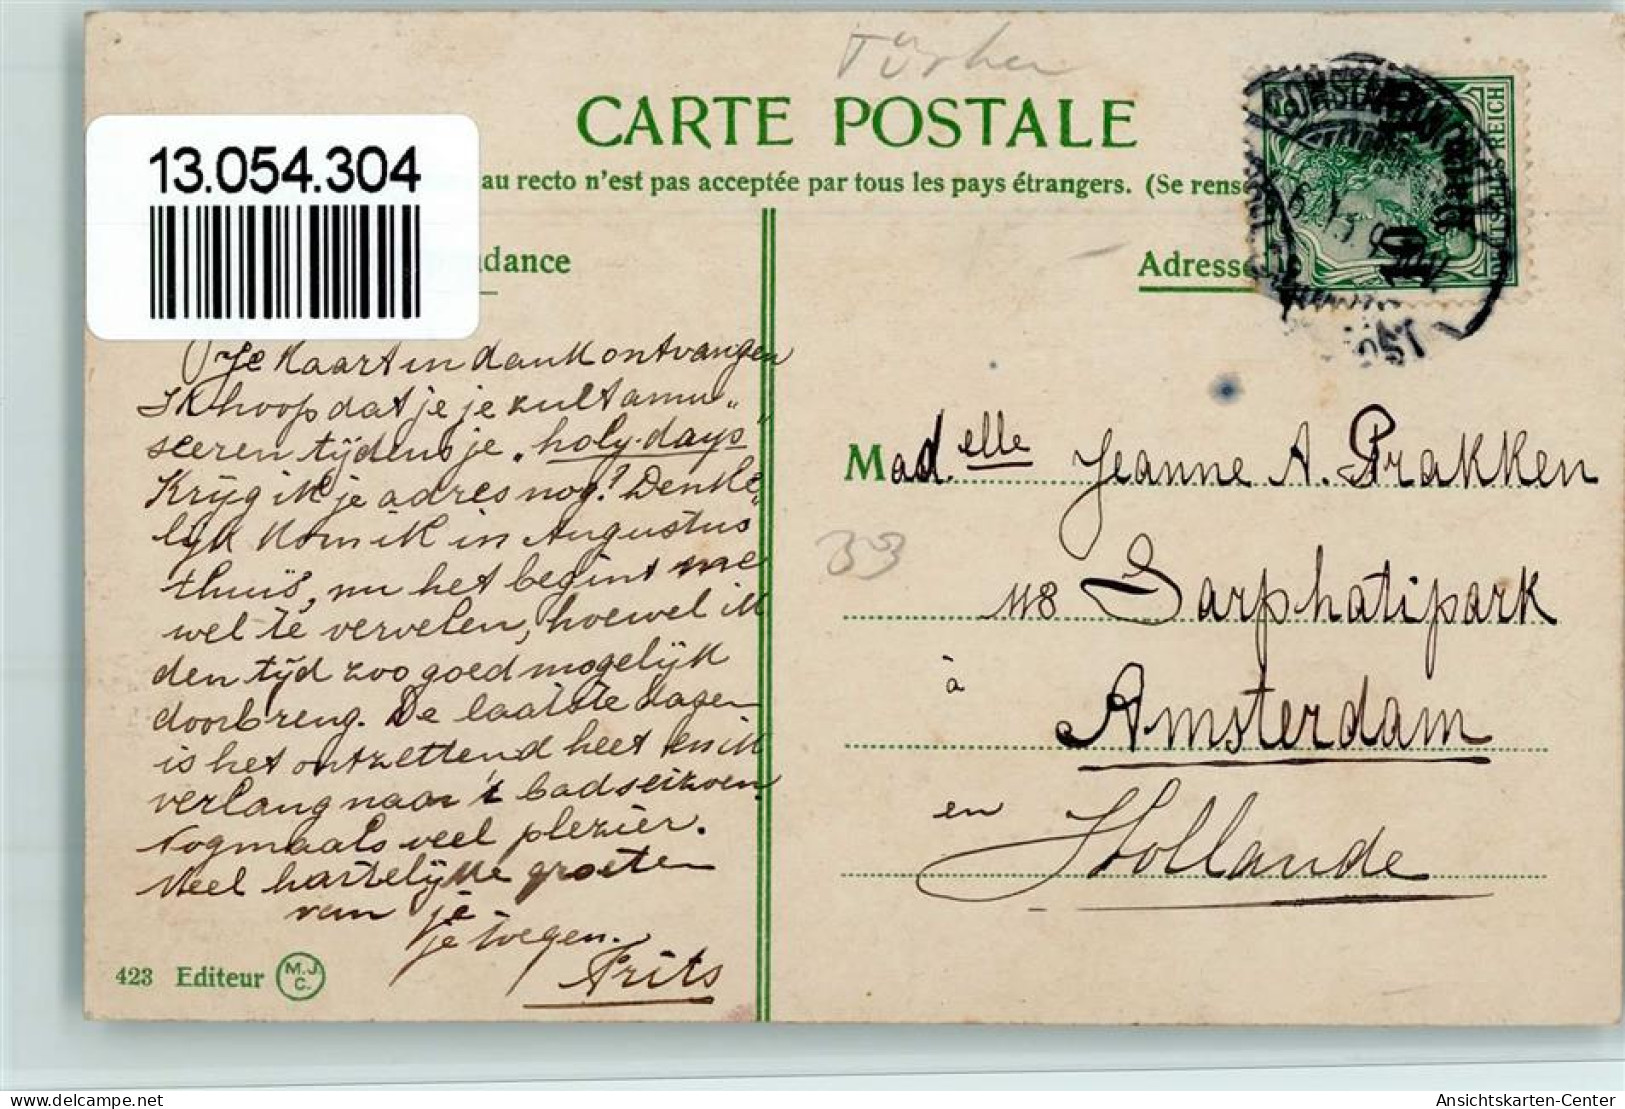 Türkei
CARTE POSTALE
13.054.304
au recto n'est pas acceptée par tous les pays étrangers. (Se rense
ndance
Adresse
DEUTSCHES REICH
10
Je kaart in dank ontvangen
Ik hoop dat je je zult amu„
seeren tijdens je „holy-days"
Krijg ik je adres nog? Denke„
lijk kom ik in Augustus
thuis, nu het begint me
wel te vervelen, hoewel ik
den tijd zoo goed mogelijk
doorbreng. De laatste dagen
is het ontzettend heet en ik
verlang naar 't badseizoen.
Nogmaals veel plezier.
Veel hartelijke groeten
van je
je toegen.
Frits
Mad.elle Jeanne A. Prakken
33
118 Sarphatipark
à
Amsterdam
en
Hollande
423 Editeur M.J.C.
delcampe.net
Ansichtskarten-Center